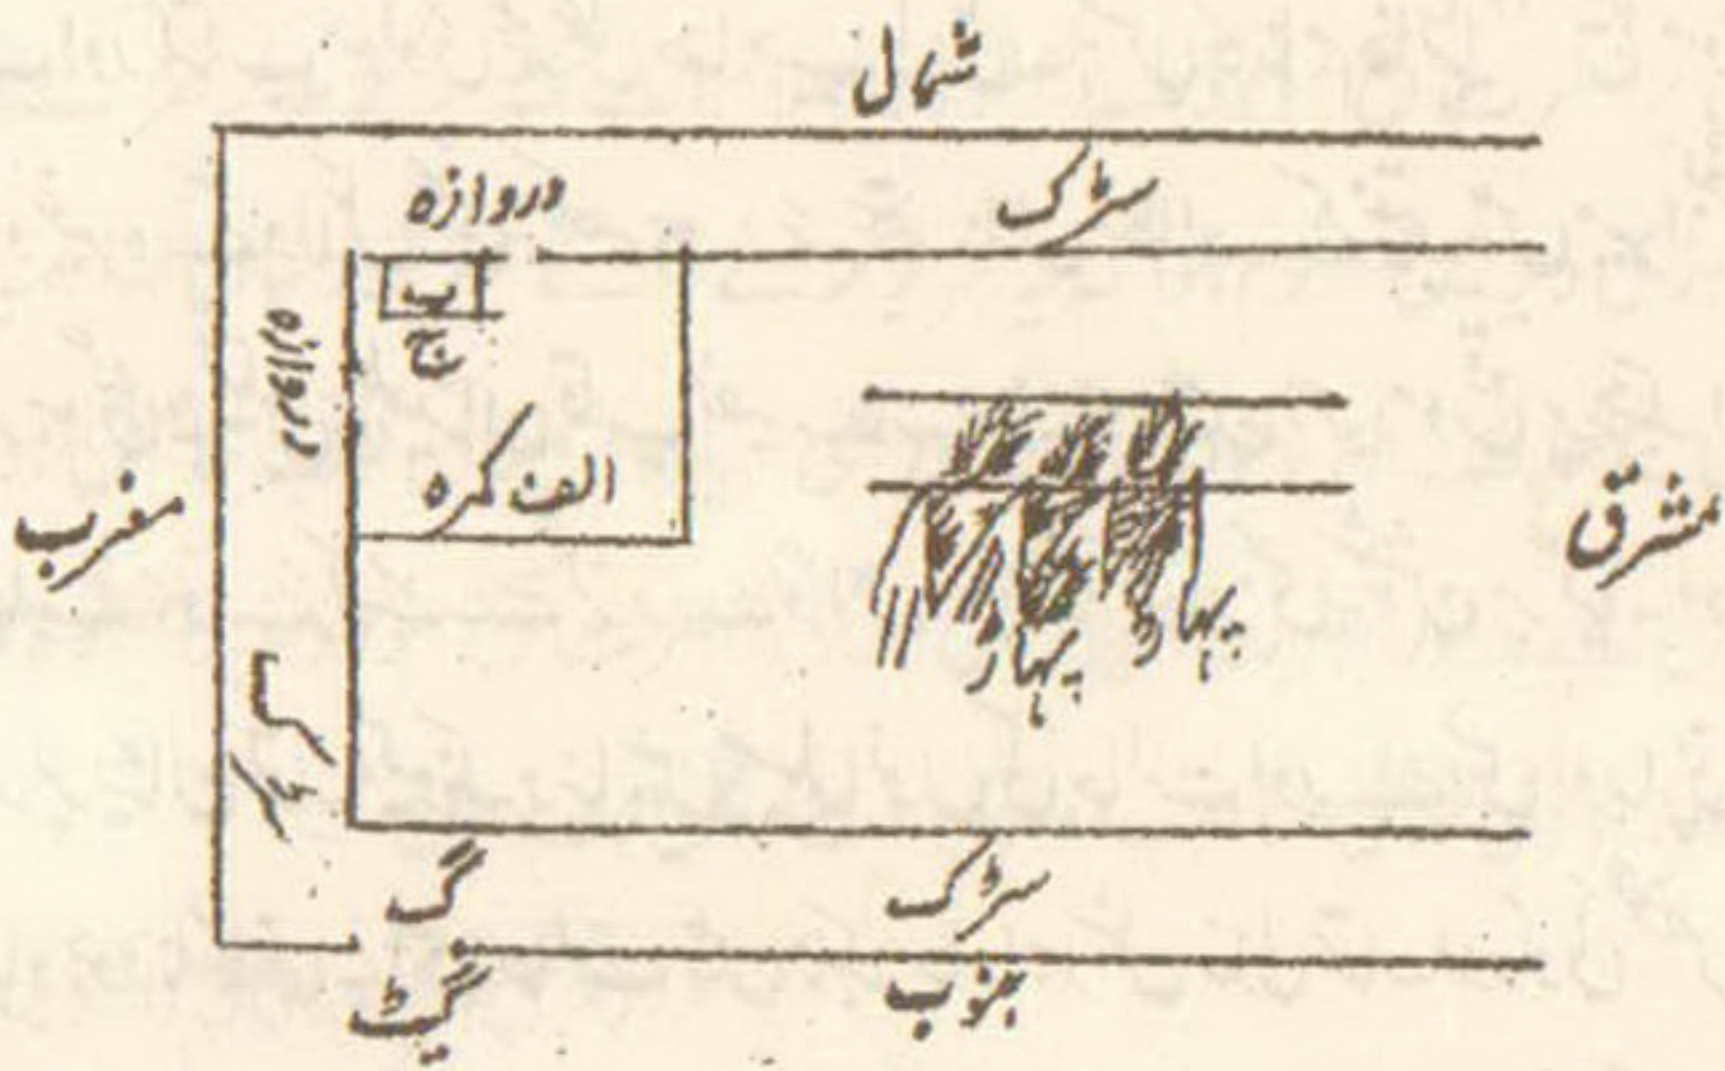 شمال
دروازہ
سڑک
ب
ج
دروازہ
الف کمرہ
مغرب
مشرق
پہاڑ
پہاڑ
سڑک
گ
سڑک
گیٹ
جنوب